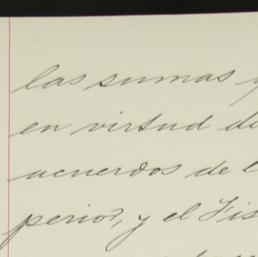 las sumas
en virtud de
acuerdos de l
perior, y el Fis